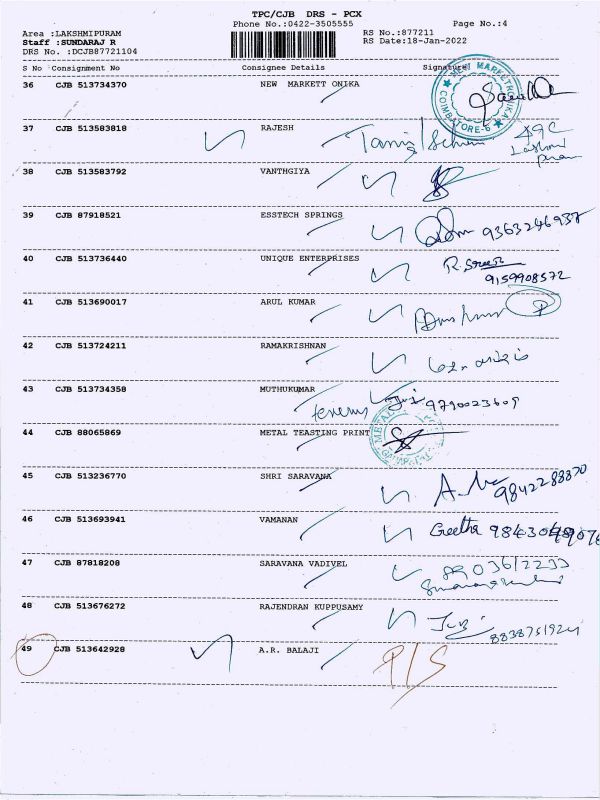 TPC/CJB DRS - PCX
Phone No.:0422-3505555 Page No.:4
Area :LAKSHMIPURAM RS No.:877211
Staff :SUNDARAJ R RS Date:18-Jan-2022
DRS No. :DCJB87721104
S No Consignment No Consignee Details Signature
36 CJB 513734370 NEW MARKETT ONIKA
COIMBATORE-6
37 CJB 513583818 RAJESH
38 CJB 513583792 VANTHGIYA
39 CJB 87918521 ESSTECH SPRINGS 9363246937
40 CJB 513736440 UNIQUE ENTERPRISES R.Sree
9159908572
41 CJB 513690017 ARUL KUMAR
42 CJB 513724211 RAMAKRISHNAN
43 CJB 513734358 MUTHUKUMAR 9790023609
44 CJB 88065869 METAL TEASTING PRINT
METAL
45 CJB 513236770 SHRI SARAVANA 9842288870
46 CJB 513693941 VAMANAN Geetha
47 CJB 87818208 SARAVANA VADIVEL 8903612233
48 CJB 513676272 RAJENDRAN KUPPUSAMY
49 CJB 513642928 A.R. BALAJI P/S